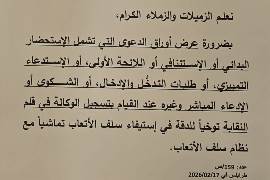 نعلم الزميلات والزملاء الكرام،
بضرورة عرض أوراق الدعوى التي تشمل الإستحضار
البدائي أو الإستئنافي أو اللائحة الأولى، أو الإستدعاء
التمييزي، أو طلبات التدخُّل والإدخال، أو الشكوى أو
الإدعاء المباشر وغيره عند القيام بتسجيل الوكالة في قلم
النقابة توخياً للدقة في إستيفاء سلف الأتعاب تماشياً مع
نظام سلف الأتعاب.
عدد: 159/ص
طرابلس في 2026/02/17